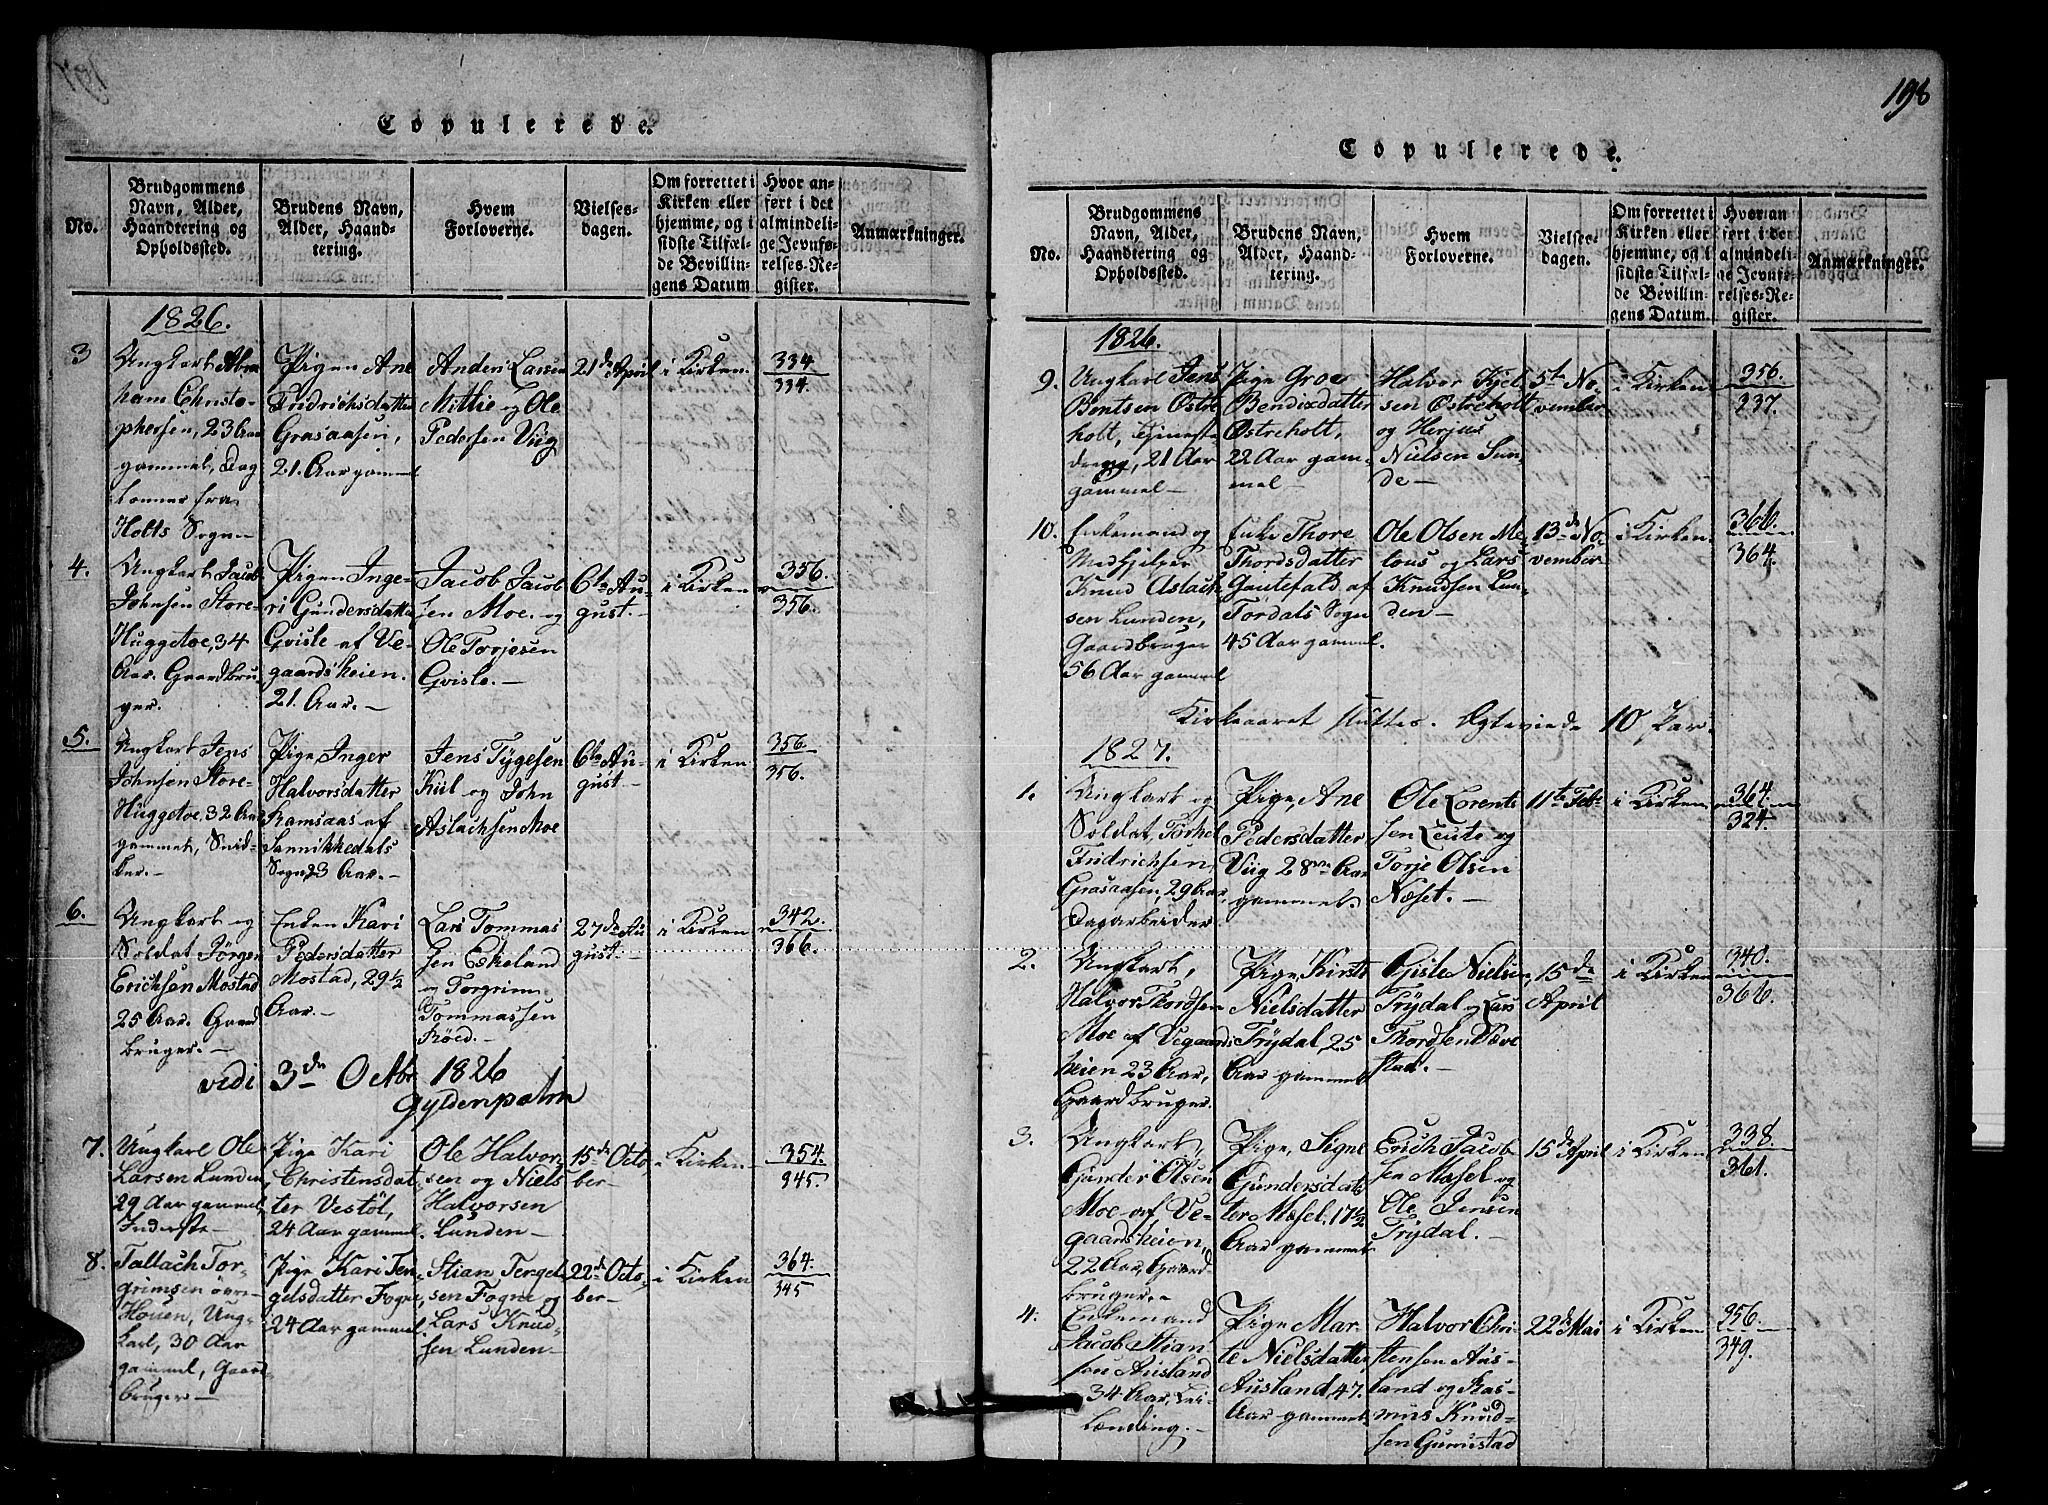 198
Copulerede.
No.
Brudgommens
Navn, Alder,
Haandtering og
Opholdssted.
Brudens Navn,
Alder, Haand-
tering.
Hvem
Forloverne.
Vielses-
dagen.
Om forrettet i
Kirken eller
hjemme, og i
sidste Tilfæl-
de Bevillin-
gens Datum
Hvor an-
ført i det
almindeli-
ge Jevnfø-
relses-Re-
gister.
Anmærkninger.
1826.
3
Ungkarl Abra
ham Christo-
phersen, 23 Aar
gammel, Dag
lønner fra
Holts Sogn
Pigen Ane
Fridrichsdatter
Grasaasen,
21. Aar gammel
Anders Larsen
Mittie og Ole
Pedersen Viig
21de April
i Kirken.
334
334.
4.
Ungkarl Jacob
Johnsen Store-
Huggetoe, 34
Aar. Gaardbru
ger.
Pigen Inge-
ri Gundersdatter
Gvisle af Ve-
gaardsheien.
21. Aar. -
Jacob Jacob
sen Moe. og
Ole Torjesen
Gvisle. -
6te Au-
gust -
i Kirken
356.
356.
5.
Ungkarl Jens
Johnsen Store-
Huggetoe, 32 Aar
gammel, Snid-
ker. -
Pige Inger
Halvorsdatter
Ramsaas af
Sannikkedals
Sogn, 23 Aar. -
Jens Tygesen
Kiil og John
Aslachsen Moe
6te Au-
gust -
i Kirken
356.
356.
6.
Ungkarl og
Soldat Jørgen
Erichsen Mostad
25 Aar. Gaard
bruger. -
Enken Kari
Pedersdatter
Mostad, 29 1/2
Aar. -
Lars Tommas
sen Eskeland
og Torgrim
Tommassen
Røed. -
27de Au
gust. -
i Kirken
342.
366.
vidi 3de Octbr 1826
Gyldenpalm
7.
Ungkarl Ole
Larsen Lunden
29 Aar gammel,
Inderste -
Pige Kari
Christensdat
ter Vestøl,
24 Aar gammel.
Ole Halvor,
sen og Niels
Halvorsen
Lunden -
15de Octo
ber -
i Kirken
354.
345.
8.
Tallach Tor-
grimsen øvre-
Houen, Ung-
karl, 30 Aar
gammel, Gaard
bruger -
Pige Kari Ten,
gelsdatter Fogne,
24 Aar gammel.
Stian Tergel-
sen Fogne og
Lars Knud-
sen Lunden -
22de Octo-
ber -
i Kirken
364.
345
Copulerede.
No.
Brudgommens
Navn, Alder,
Haandtering og
Opholdssted.
Brudens Navn,
Alder, Haand-
tering.
Hvem
Forloverne.
Vielses-
dagen.
Om forrettet i
Kirken eller
hjemme, og i
sidste Tilfæl-
de Bevillin-
gens Datum.
Hvor an
ført i der
almindeli-
ge Jevnfø-
relses-Re-
gister.
Anmærkninger.
1826.
9.
Ungkarl Jens
Bentsen Østre
holt, tjeneste
dreng, 21 Aar
gammel -
Pige Groe
Bendixdatter
Østreholt,
22 Aar gam-
mel -
Halvor Kjel
sen Østreholt
og Herjus
Nielsen Sun,
de -
5te No-
vember
i Kirken
356.
337.
10.
Enkemand og
Medhjelper
Knud Aslach
sen Lunden,
Gaardbruger
56 Aar gammel
Enke Thore
Thordsdatter
Gautefald af
Tørdals Sogn
45 Aar gammel.
Ole Olsen Me-
løus og Lars
Knudsen Lun-
den -
13de No-
vember
i Kirken
366.
364.
Kirkeaaret sluttes. Ægteviede 10 Par.
1827.
1.
Ungkarl og
Soldat, Tørkel
Fridrichsen
Grasaasen, 29 Aar,
Dagarbeider
Pige, Ane
Pedersdatter
Viig 28 Aar
gammel.
Ole Lorents
sen Leute og
Torje Olsen
Næset. -
11te Feb.
i Kirken
364.
324.
2.
Ungkarl,
Halvor Thordsen
Moe af Vegaards
heien 23 Aar,
Gaardbruger.
Pige Kirste
Nielsdatter
Trydal, 25
Aar gammel
Gisle Nielsen
Trydal og Lars
Thordsen Eve
stad. -
15de
April
i Kirken
340.
366.
3.
Ungkarl,
Gunder Olsen
Moe af Ve-
gaardsheien,
22 Aar, Gaard-
bruger. -
Pige, Signe
Gundersdat-
ter Mæsel, 17 1/2
Aar gammel
Erich Jacob
sen Mæsel og
Ole Jensen
Trydal. -
15de April
i Kirken
338.
361.
4.
Enkemand
Jacob Stian-
sen Ausland
34 Aar, Lei-
lænding. -
Pige, Mar-
te Nielsdatter
Ausland, 47.
Aar gammel
Halvor Chri-
stensen Aus-
land og Ras-
mus Knud-
sen Gumistad
22de Mai
i Kirken
356.
349.